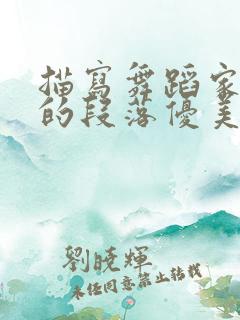 描寫舞蹈家
的段落優美
劉曉輝
未經同意禁止轉載